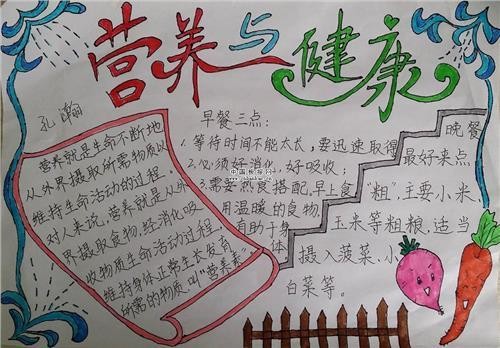 营养与健康
孔瀚
营养就是生命不断地
从外界摄取所需物质以
维持生命活动的过程。
对人来说,营养就是从外
界摄取食物,经消化吸
收物质生命活动过程,
维持身体正常生长发育
所需的物质叫“营养素”
早餐三点:
1.等待时间不能太长,要迅速取得
2.必须好消化,好吸收;
3.需要燕食搭配,早上食
用温暖的食物,
有助于身
体
晚餐
最好来点
“粗”,主要小米,
玉米等粗粮,适当
摄入菠菜,小
白菜等。
中国板报网